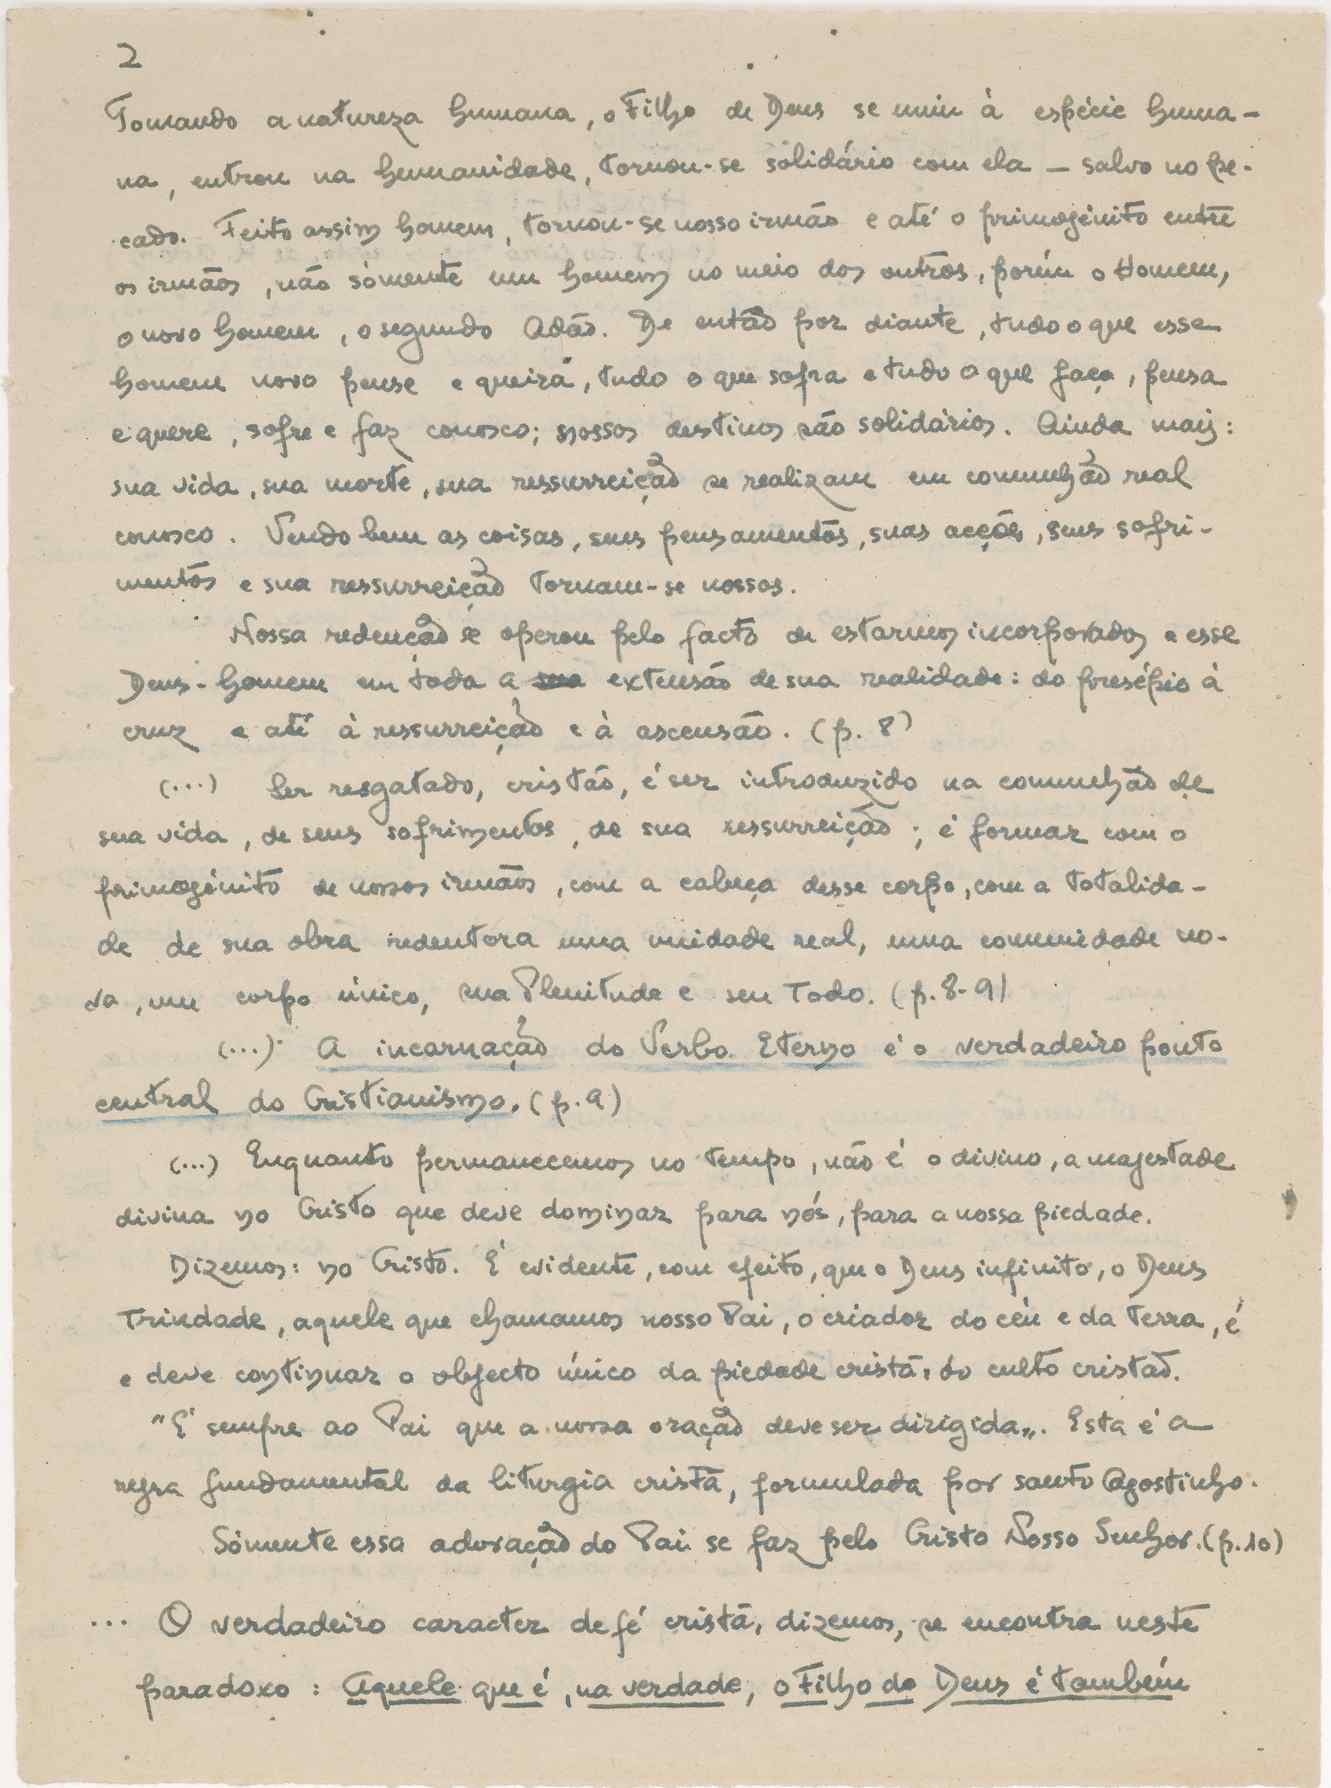 2
Tomando a natureza humana, o Filho de Deus se uniu à espécie huma-
na, entrou na humanidade, tornou-se solidário com ela — salvo no pe-
cado. Feito assim homem, tornou-se nosso irmão e até o primogénito entre
os irmãos, não sòmente um homem no meio dos outros, porém o Homem,
o novo homem, o segundo Adão. De então por diante, tudo o que esse
homem novo pense e queira, tudo o que sofra e tudo o que faça, pensa
e quere, sofre e faz conosco; nossos destinos são solidários. Ainda mais:
sua vida, sua morte, sua ressurreição se realizam em comunhão real
conosco. Vendo bem as coisas, seus pensamentos, suas acções, seus sofri-
mentos e sua ressurreição tornam-se nossos.
Nossa redenção se operou pelo facto de estarmos incorporados a esse
Deus-homem em toda a sua extensão de sua realidade: do presépio à
cruz e até à ressurreição e à ascensão. (p. 8)
(...) Ser resgatado, cristão, é ser introduzido na comunhão de
sua vida, de seus sofrimentos, de sua ressurreição; é formar com o
primogénito de nossos irmãos, com a cabeça desse corpo, com a totalida-
de de sua obra redentora uma unidade real, uma comunidade no-
va, um corpo único, sua Plenitude e seu Todo. (p. 8-9)
(...) A incarnação do Verbo Eterno é o verdadeiro ponto
central do Cristianismo. (p. 9)
(...) Enquanto permanecemos no tempo, não é o divino, a majestade
divina no Cristo que deve dominar para nós, para a nossa piedade.
Dizemos: no Cristo. É evidente, com efeito, que o Deus infinito, o Deus
Trindade, aquele que chamamos nosso Pai, o criador do céu e da terra, é
e deve continuar o objecto único da piedade cristã, do culto cristão.
"É sempre ao Pai que a nossa oração deve ser dirigida". Esta é a
regra fundamental da liturgia cristã, formulada por santo Agostinho.
Sòmente essa adoração do Pai se faz pelo Cristo Nosso Senhor. (p. 10)
... O verdadeiro caracter de fé cristã, dizemos, se encontra neste
paradoxo: Aquele que é, na verdade, o Filho de Deus é também